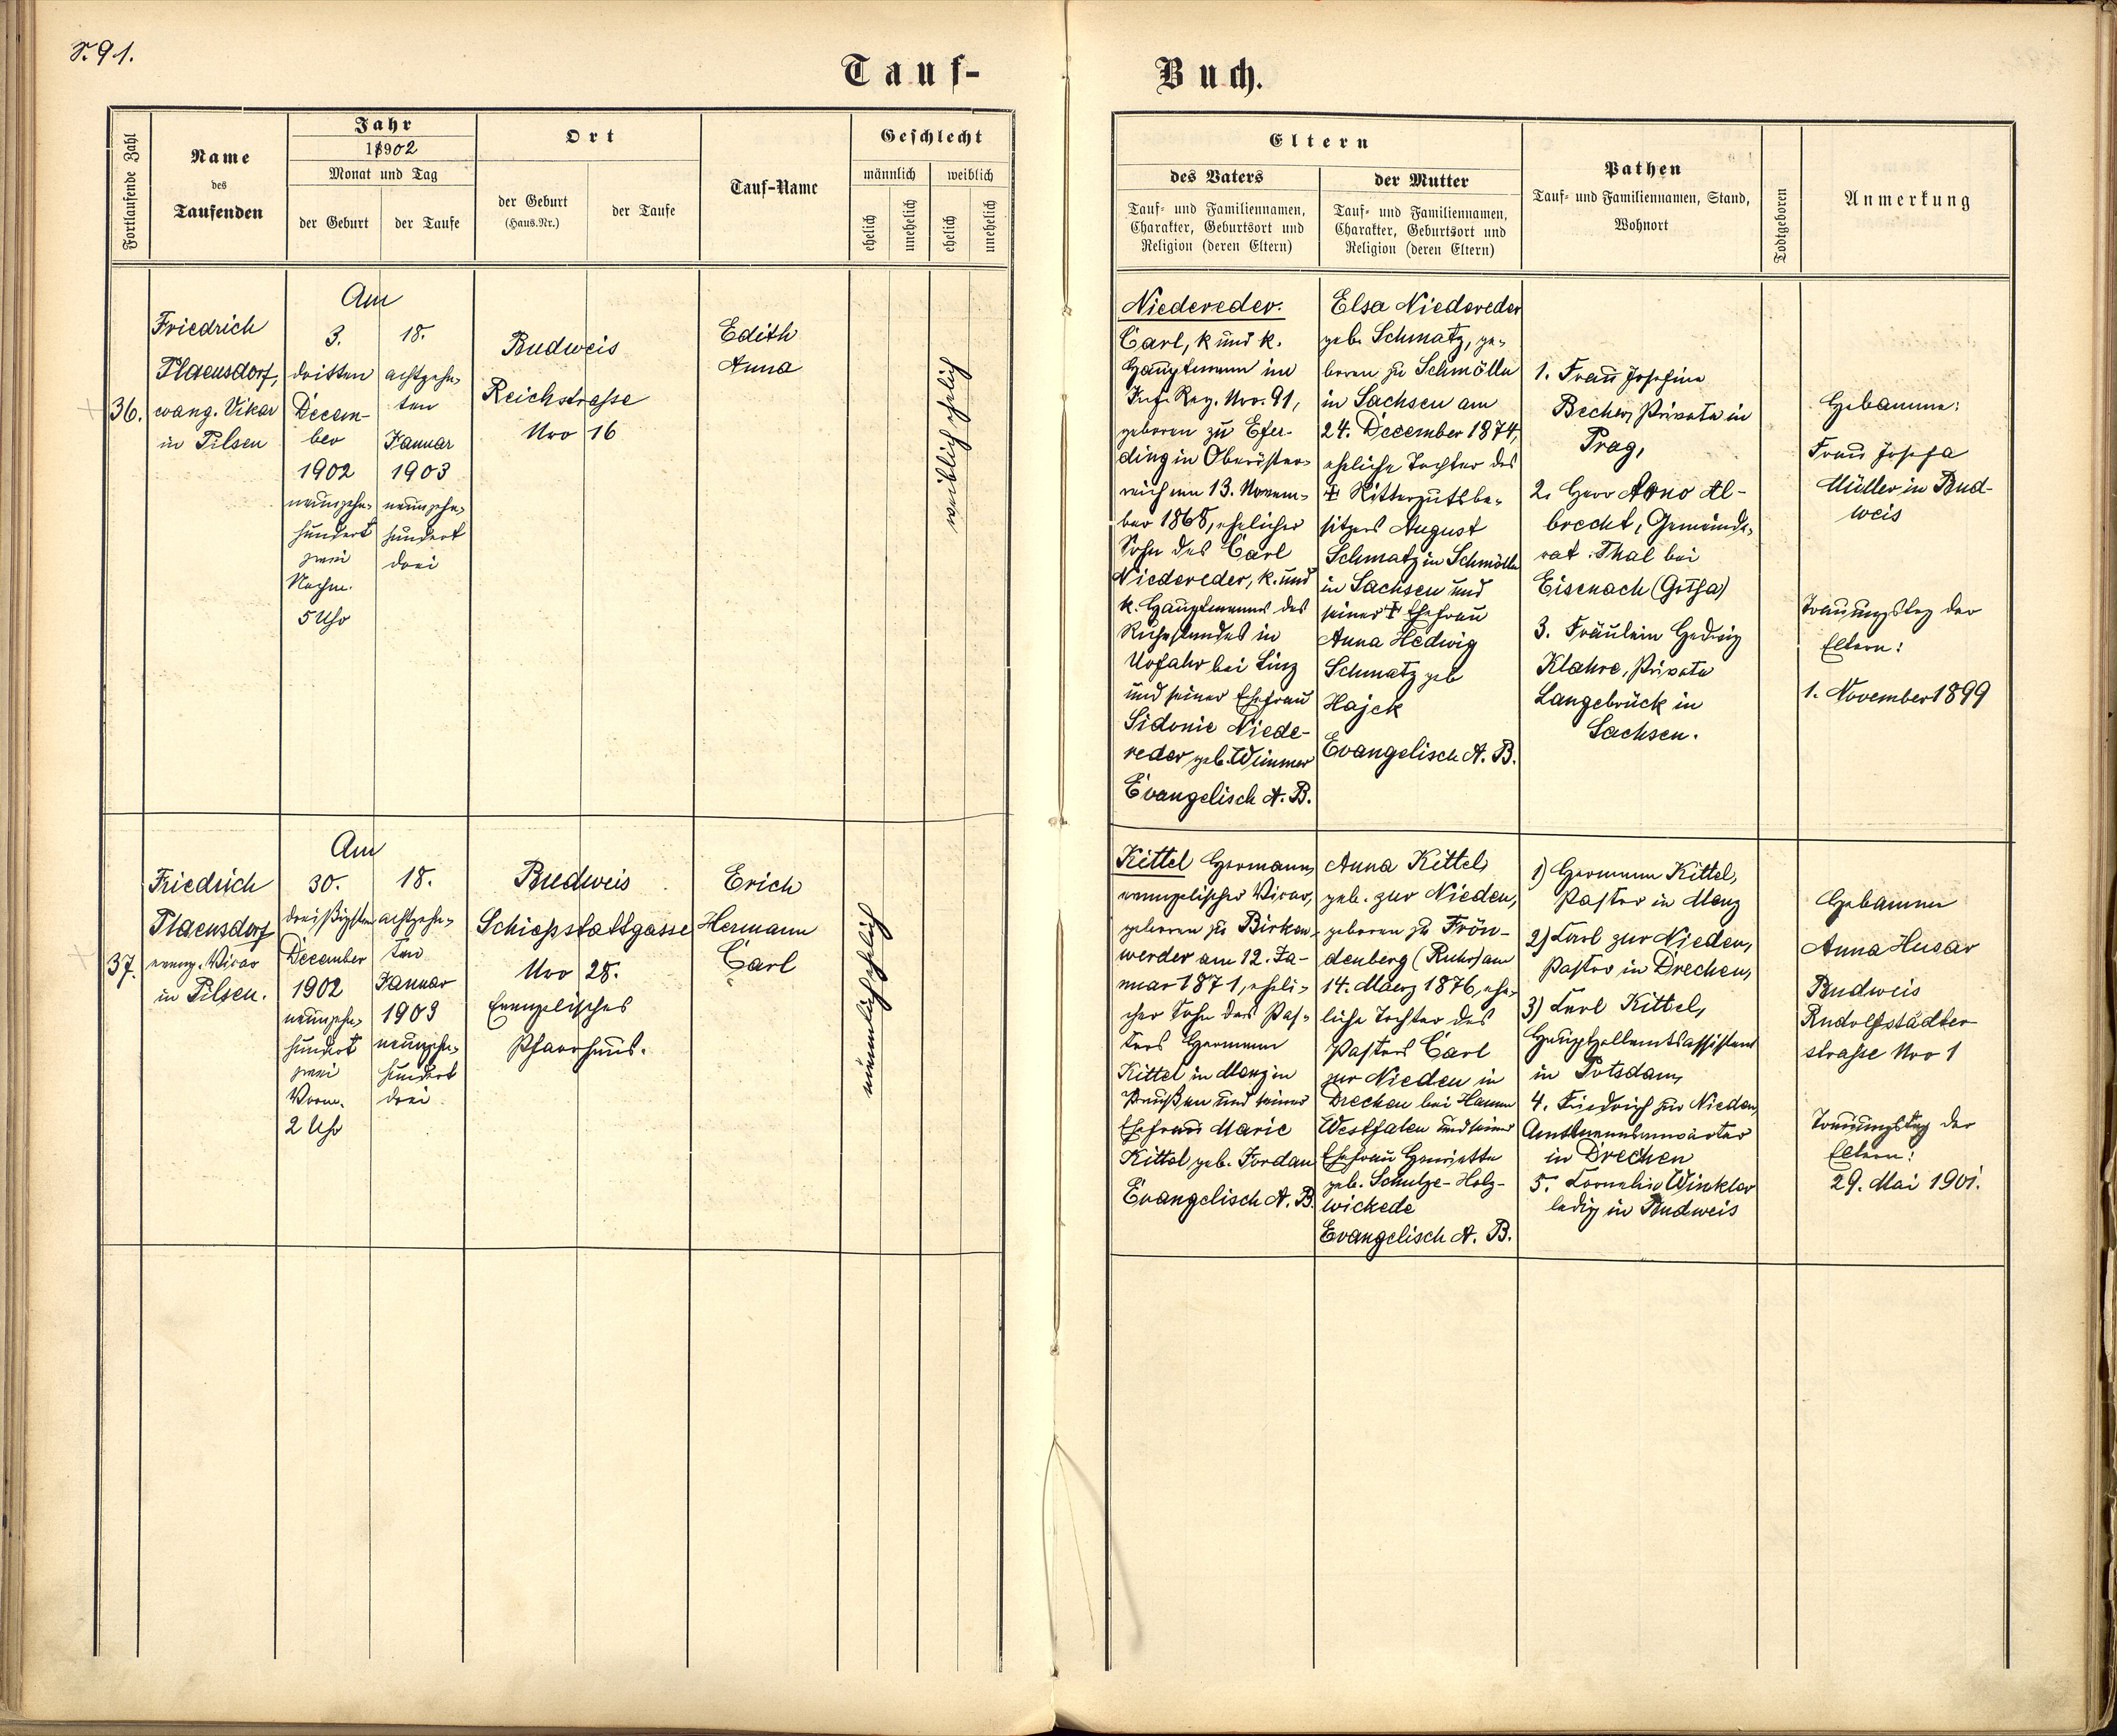 S. 91.
Tauf-
Buch.
Fortlaufende Zahl
Name
des
Taufenden
Jahr
18902
Monat und Tag
der Geburt
der Taufe
Ort
der Geburt
(Haus-Nr.)
der Taufe
Tauf-Name
Geschlecht
männlich
weiblich
ehelich
unehelich
ehelich
unehelich
Eltern
des Vaters
Tauf- und Familiennamen,
Charakter, Geburtsort und
Religion (deren Eltern)
der Mutter
Tauf- und Familiennamen,
Charakter, Geburtsort und
Religion (deren Eltern)
Pathen
Tauf- und Familiennamen, Stand,
Wohnort
Todtgeboren
Anmerkung
36.
Friedrich
Plaensdorf,
evang. Vikar
in Pilsen
Am
3.
dritten
Decem-
ber
1902
neunzehn-
hundert
zwei
Nachm.
5 Uhr
18.
achtzehn-
ten
Januar
1903
neunzehn-
hundert
drei
Budweis
Reichstrasse
Nro 16
Edith
Anna
weiblich ehelich
Niedereder.
Carl, k und k.
Hauptmann im
Inf. Reg. Nro. 91,
geboren zu Efer-
ding in Oberöster-
reich am 13. Novem-
ber 1868, ehelicher
Sohn des Carl
Niedereder, k. und
k. Hauptmanns des
Ruhestandes in
Urfahr bei Linz
und seiner Ehefrau
Sidonie Niede-
reder geb. Wimmer
Evangelisch A. B.
Elsa Niedereder
geb. Schmatz, ge-
boren zu Schmölln
in Sachsen am
24. December 1874,
eheliche Tochter des
† Rittergutsbe-
sitzers August
Schmatz in Schmölln
in Sachsen und
seiner † Ehefrau
Anna Hedwig
Schmatz geb
Hajek
Evangelisch A. B.
1. Frau Josefine
Becher, Private in
Prag,
2. Herr Arno Al-
brecht, Gemeinde-
rat Thal bei
Eisenach (Gotha)
3. Fräulein Hedwig
Klahre, Private
Langebrück in
Sachsen.
Hebamme:
Frau Josefa
Müller in Bud-
weis
Trauungstag der
Eltern:
1. November 1899
37.
Friedrich
Plaensdorf
evang. Vicar
in Pilsen.
Am
30.
dreißigsten
December
1902
neunzehn-
hundert
zwei
Vorm.
2 Uhr
18.
achtzehn-
ten
Januar
1903
neunzehn-
hundert
drei
Budweis
Schiessstattgasse
Nro 28.
Evangelisches
Pfarrhaus.
Erich
Hermann
Carl
männlich ehelich
Kittel Hermann,
evangelischer Vicar,
geboren zu Birken-
werder am 12. Ja-
nuar 1871, eheli-
cher Sohn des Pas-
tors Hermann
Kittel in Manz in
Preußen und seiner
Ehefrau Marie
Kittel geb. Jordan
Evangelisch A. B.
Anna Kittel,
geb. zur Nieden,
geboren zu Frön-
denberg (Ruhr) am
14. Maerz 1876, ehe-
liche Tochter des
Pastors Carl
zur Nieden in
Drechen bei Hamm
Westfalen und seiner
Ehefrau Henriette
geb. Schulze-Holz-
wickede
Evangelisch A. B.
1) Hermann Kittel,
Pastor in Manz
2) Carl zur Nieden,
Pastor in Drechen,
3) Carl Kittel,
Hauptzollamtsassistent
in Potsdam,
4. Friedrich zur Nieden,
Amtmannsanwärter
in Drechen
5. Cornelia Winkler
ledig in Budweis
Hebamme
Anna Husar
Budweis
Rudolfstädter-
strasse Nro 1
Trauungstag der
Eltern:
29. Mai 1901.